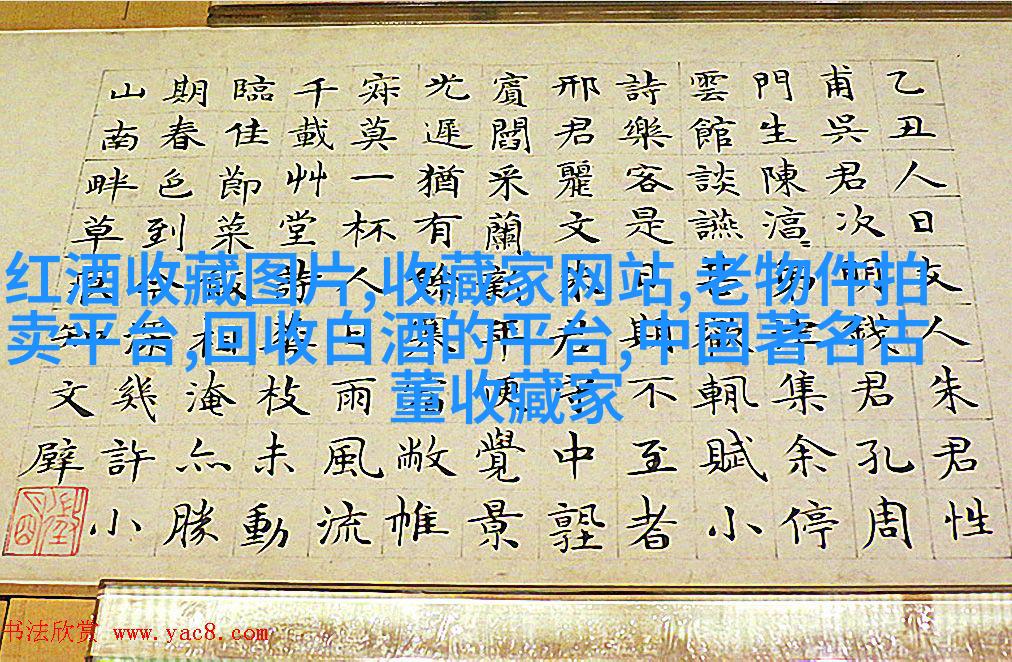 乙丑人日友人朱君性
甫吳君次明錢君孔周
門生陳集余停
雲館談讌輒賦小
詩樂客是日期不至者
邢君麗文君中
賓閻采蘭年便覺景
光遲猶有敝帷
寂莫一杯人日雨風流
千載艸堂詩枝未動
臨佳節菜相淹亦勝
期春色到今深幾許小
山南畔草痕知文壁
红酒收藏图片,收藏家网站,老物件拍
卖平台,回收白酒的平台,中国著名古
董收藏家
书法欣赏 www.yac8.com